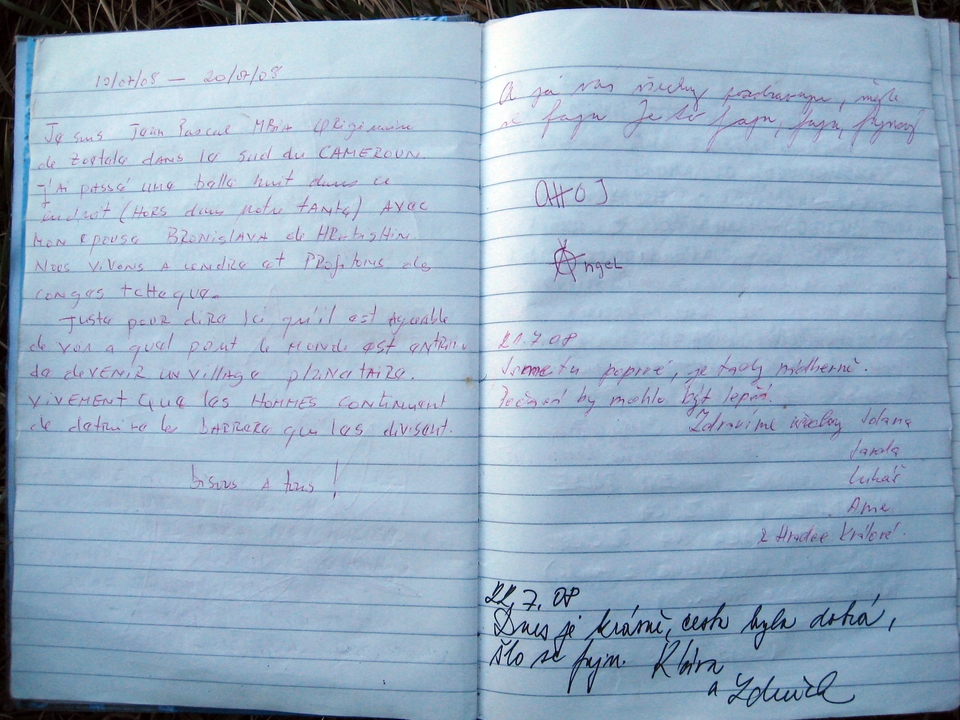 19/07/08 — 20/07/08
Je suis Jean Pascal MBIA originaire
de Zoetele DANS le sud du CAMEROUN.
J'AI passé une belle nuit dans ce
endroit (HORS dans notre tANte) AVEC
MON epouse BRONISLAVA de
Nous vivons A londre et PROfitons des
conges tcheque.
Juste pour dire ici qu'il est Agreable
de voir a quel point le MONDE est entrain
de deVENIR UN village plAnetAire.
VIVEMENT QUE les HOMMES continuent
de detruire la bARRERE que les divisent.
bisous A tous !
A já vás všechny pozdravuju, mějte
se fajn Je to fajn, fajn,
AHOJ
Angel
21.7.08
Jsme tu poprvé, je tady nádherně.
Počasí by mohlo být lepší.
Zdravíme všechny Jolana
Jarda
Lukáš
z Hradce Králové.
22.7.08
Dnes je krásně, cesta byla dobrá,
šlo se fajn. Klára
a Zdeněk